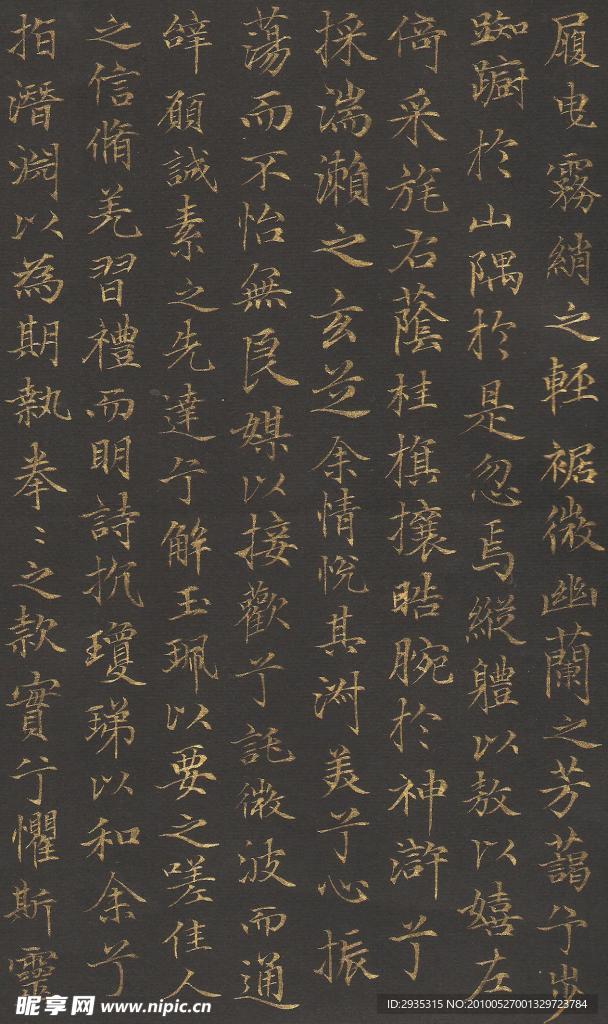 履曳霧綃之輕裾微幽蘭之芳藹兮步
踟躕於山隅於是忽焉縱軆以敖以嬉左
倚采旄右蔭桂旗攘皓腕於神滸兮
採湍瀨之玄芝余情悅其淑美兮心振
蕩而不怡無良媒以接歡兮託微波而通
辝願誠素之先達兮解玉珮以要之嗟佳人
之信脩羌習禮而明詩抗瓊珶以和余兮
指潛淵以為期執拳〻之款實兮懼斯靈
昵享网 www.nipic.cn
ID:2935315 NO:20100527001329723784